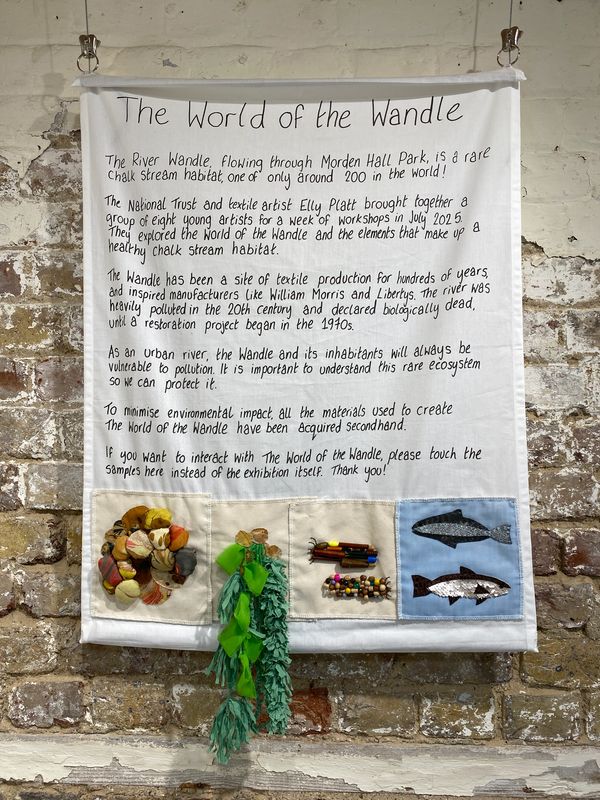 The World of the Wandle
The River Wandle, flowing through Morden Hall Park, is a rare
chalk stream habitat, one of only around 200 in the world!
The National Trust and textile artist Elly Platt brought together a
group of eight young artists for a week of workshops in July 2025.
They explored the world of the Wandle and the elements that make up a
healthy chalk stream habitat.
The Wandle has been a site of textile production for hundreds of years,
and inspired manufacturers like William Morris and Libertys. The river was
heavily polluted in the 20th century and declared biologically dead,
until a restoration project began in the 1970s.
As an urban river, the Wandle and its inhabitants will always be
vulnerable to pollution. It is important to understand this rare ecosystem
so we can protect it.
To minimise environmental impact, all the materials used to create
The World of the Wandle have been acquired secondhand.
If you want to interact with The World of the Wandle, please touch the
samples here instead of the exhibition itself. Thank you!